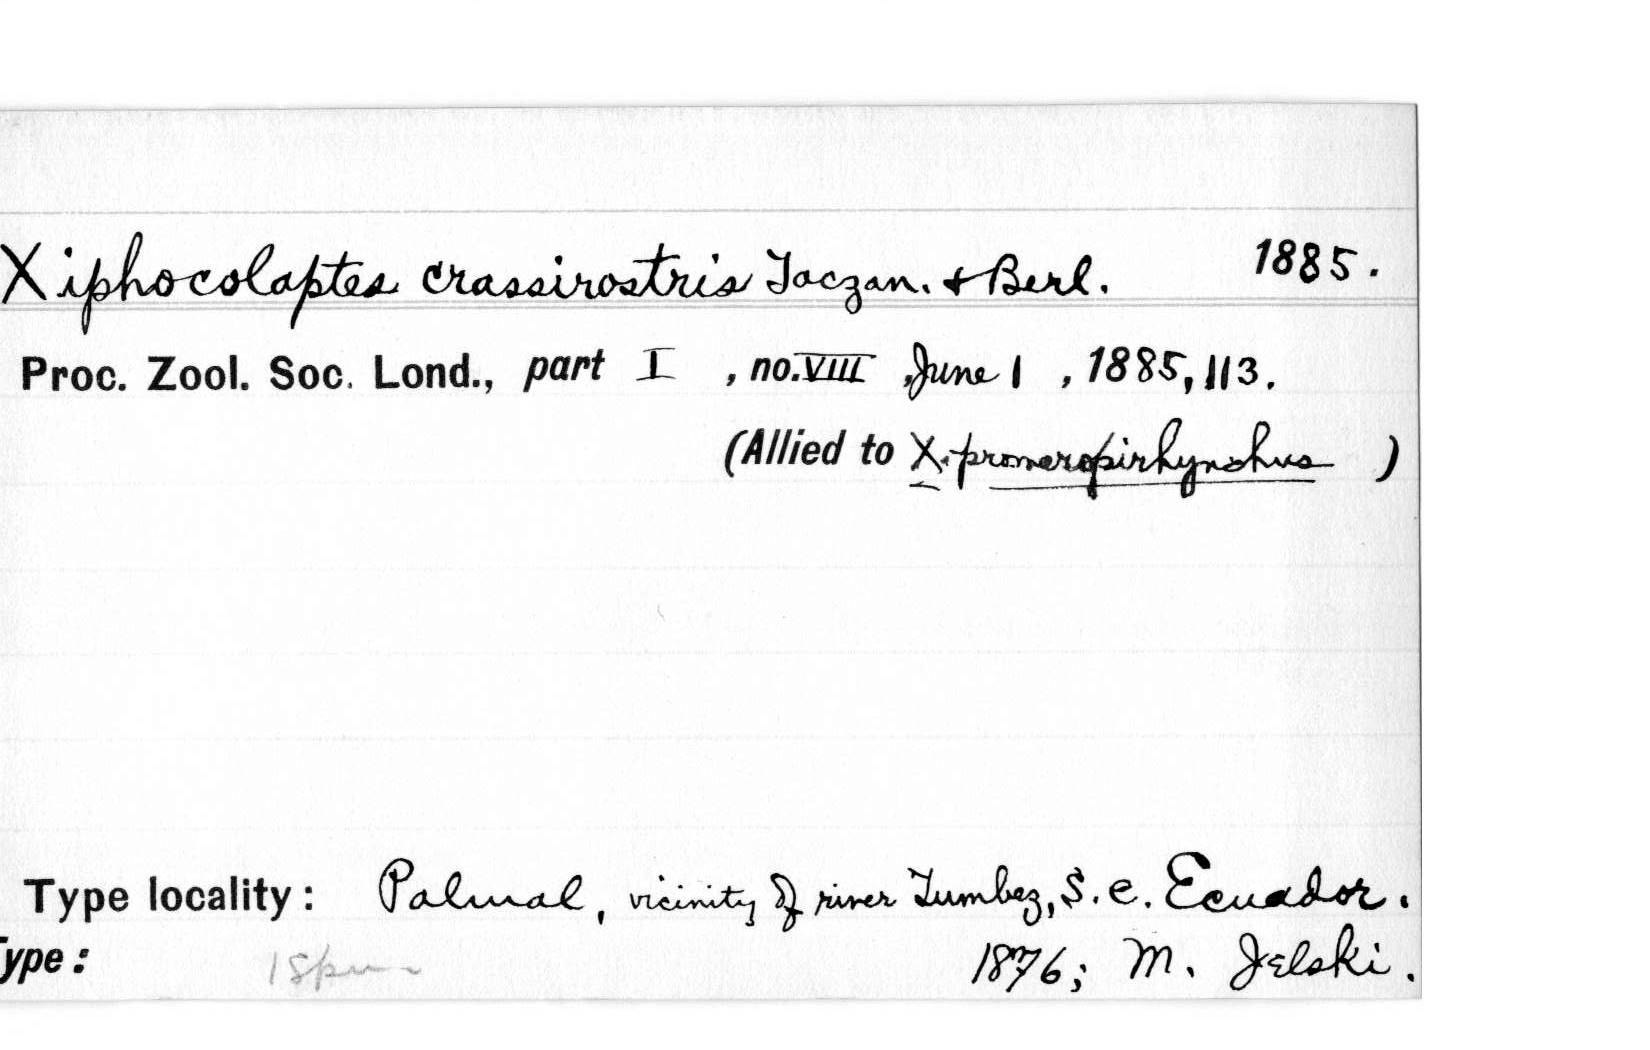 Xiphocolaptes crassirostris Taczan. & Berl. 1885.
Proc. Zool. Soc. Lond., part I , no. VIII , June 1 , 1885, 113.
(Allied to X. promeropirhynchus )
Type locality: Palmal, vicinity of river Tumbez, S. e. Ecuador.
Type: 1 Spm 1876; M. Jelski.